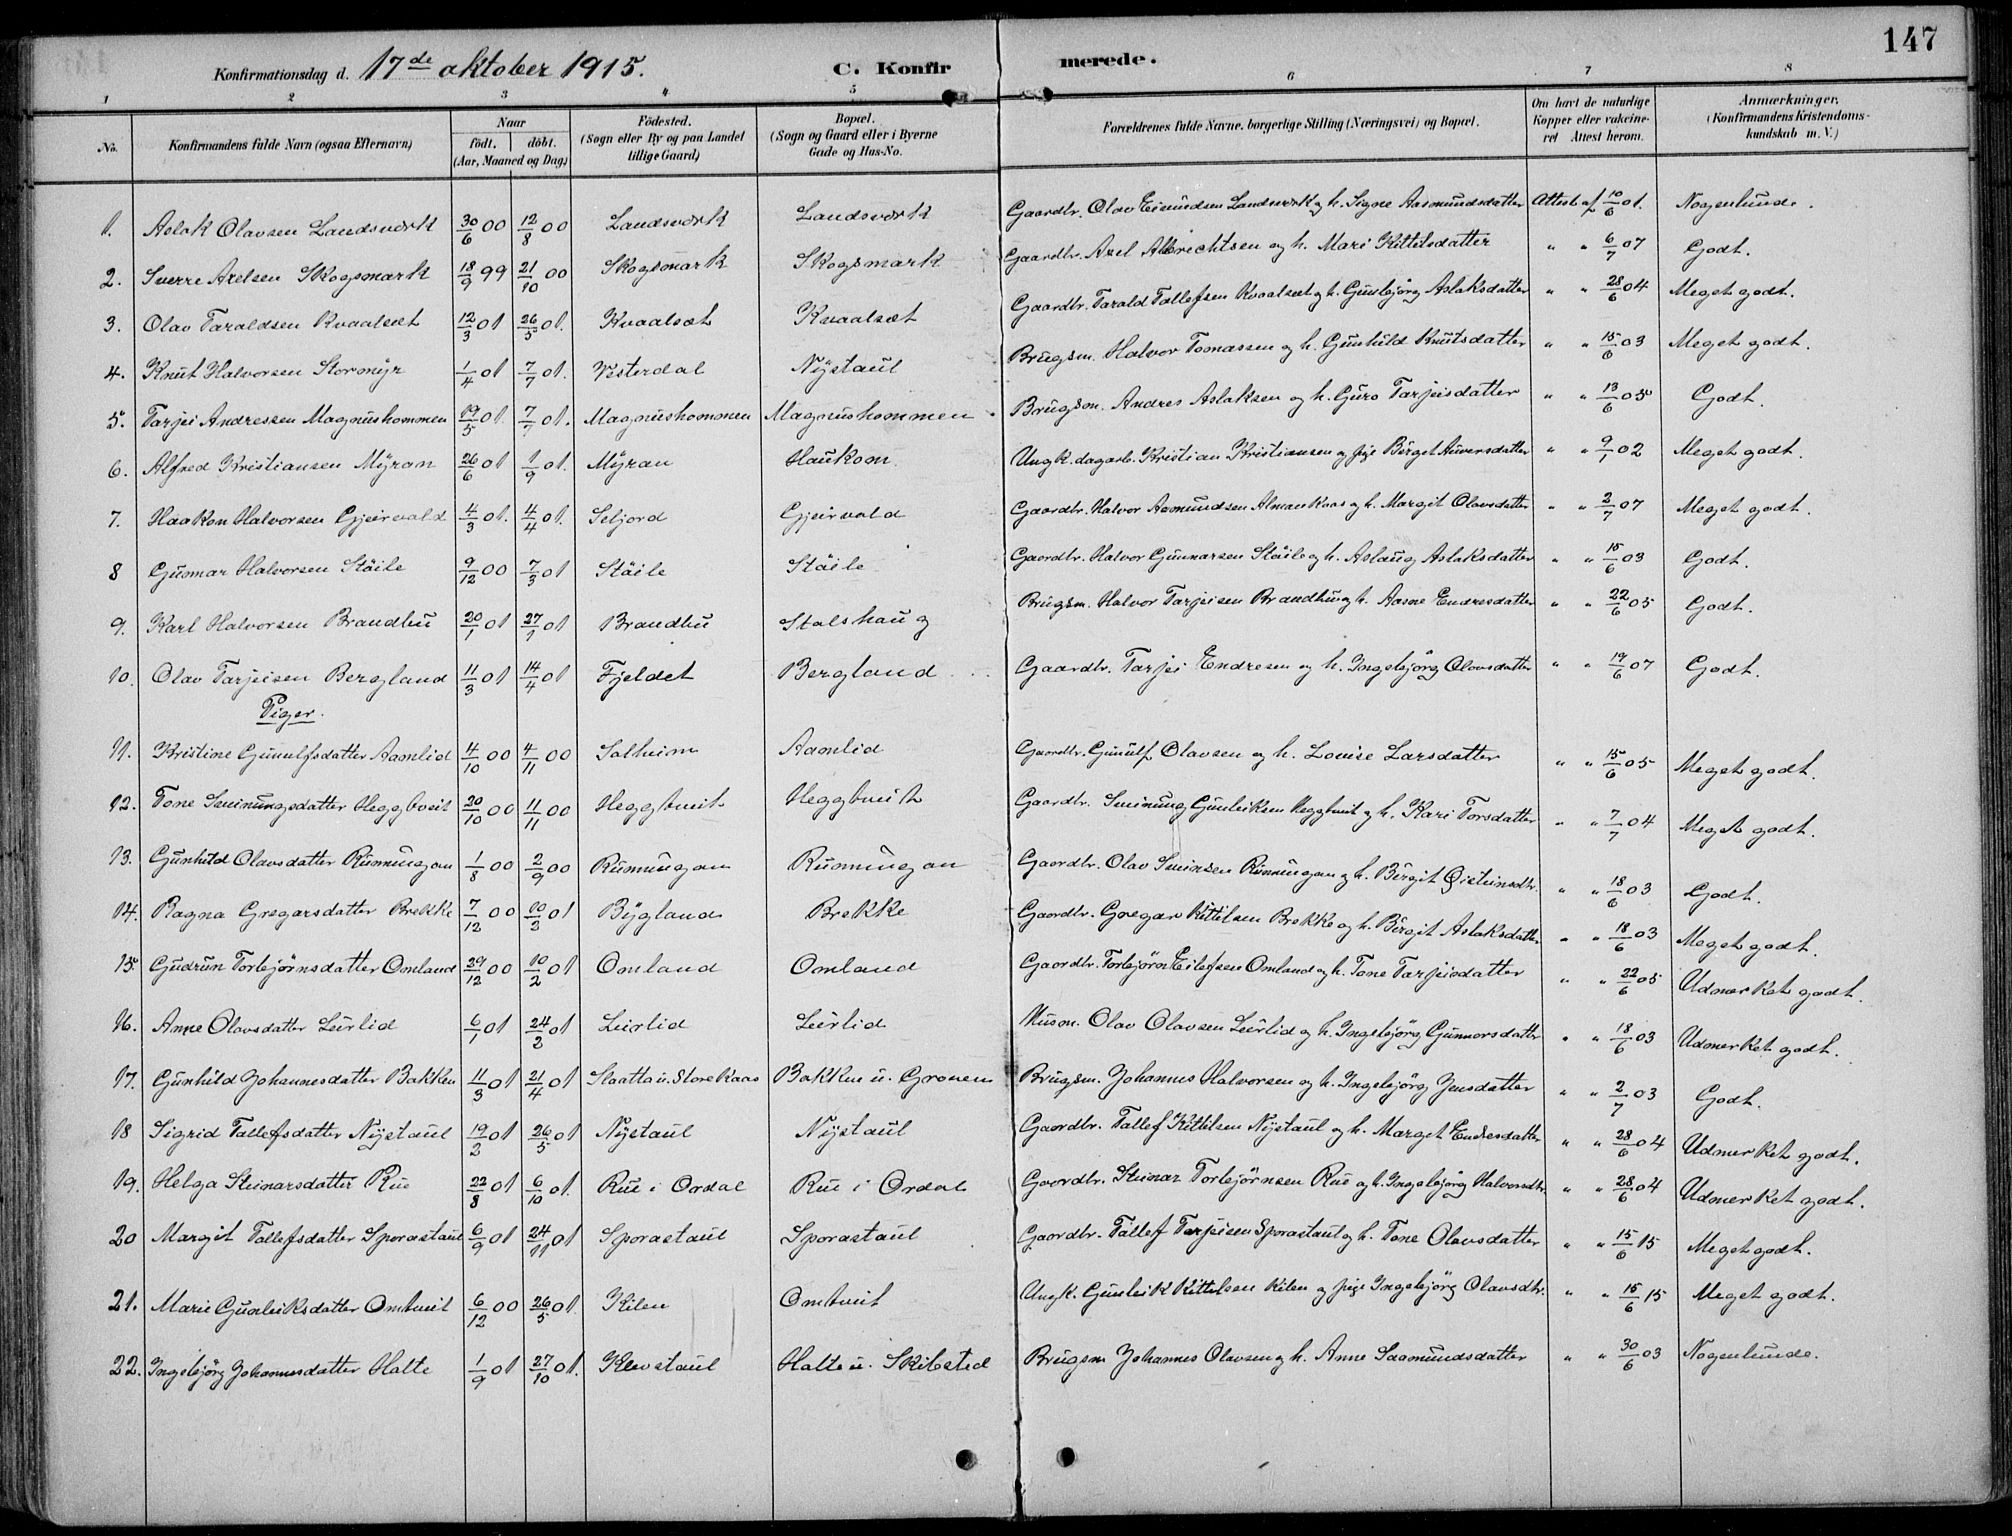 147
Konfirmationsdag d. 17de oktober 1915. C. Konfirmerede.
1 2 3 4 5 6 7 8
No. Konfirmandens fulde Navn (ogsaa Efternavn) Naar født. døbt. (Aar, Maaned og Dag) Fødested. (Sogn eller By og paa Landet tillige Gaard) Bopæl. (Sogn og Gaard eller i Byerne Gade og Hus-No. Forældrenes fulde Navne, borgerlige Stilling (Næringsvei) og Bopæl. Om havt de naturlige Kopper eller vakcineret Attest herom. Anmærkninger, (Konfirmandens Kristendomskundskab m. V.)
1. Aslak Olavsen Landsværk 30/6 00 12/8 00 Landsværk Landsværk Gaardbr. Olav Eivindsen Landsværk og h. Signe Aasmundsdatter Attest af 10/6 01. Nogenlunde.
2. Sverre Axelsen Skogsmark 18/9 99 21/10 00 Skogsmark Skogsmark Gaardbr. Axel Albrechtsen og h. Mari Kittilsdatter " " 6/7 07 Godt.
3. Olav Taraldsen Kvaalsæt 12/3 01 26/5 01. Kvaalsæt Kvaalsæt Gaardbr. Tarald Tallefsen Kvaalsæt og h. Gunbjörg Aslaksdatter " " 28/6 04 Meget godt.
4. Knut Halvorsen Stormÿr 1/4 01 7/7 01. Vesterdal Nÿstaul Brugsm. Halvor Tomassen og h. Gunhild Knutsdatter " " 15/6 03 Meget godt.
5. Tarjei Andressen Magnushommen 19/5 01. 7/7 01. Magnushommen Magnushommen Brugsm. Andres Aslaksen og h. Guro Tarjeisdatter " " 13/6 05 Godt.
6. Alfred Kristiansen Mÿran 26/6 01 1/9 01. Mÿran Haukom Ungk. dagarb. Kristian Kristiansen og pige Birget " " 9/1 02 Meget godt.
7. Haakon Halvorsen Gjeirvald 4/3 01. 4/4 01. Seljord Gjeirvald Gaardbr. Halvor Aasmundsen Almankaas og h. Margit Olavsdatter " " 2/7 07 Meget godt.
8 Gunnar Halvorsen Stäile 9/12 00 7/3 01 Stäile Stäile Gaardbr. Halvor Gunnarsen Stäile og h. Aslaug Aslaksdatter " " 15/6 03 Godt.
9. Karl Halvorsen Brandhu 20/1 01 27/1 01 Brandhu Stalshaug Brugsm. Halvor Tarjeisen Brandhu og h. Aasne Endresdatter " " 22/6 05 Godt.
10. Olav Tarjeisen Bergland 11/3 01 14/4 01 Fjeldet Bergland Gaardbr. Tarjei Endresen og h. Ingebjörg Olavsdatter " " 19/6 07 Godt.
Piger.
11. Kristine Gunulfsdatter Aamlid 4/10 00 4/11 00 Solheim Aamlid Gaardbr. Gunulf Olavsen og h. Louise Larsdatter " " 15/6 05 Meget godt.
12. Tone Sveinungsdatter Heggtveit 20/10 00 11/11 00 Heggtveit Heggtveit Gaardbr. Sveinung Gunleiksen Heggtveit og h. Kari Torsdatter " " 7/7 04 Meget godt.
13. Gunhild Olavsdatter Runningan 1/8 00 2/9 00 Runningan Runningan Gaardbr. Olav Sveinsen Runningan og h. Bergit Øisteinsdtr. " " 18/6 03 Godt.
14. Ragna Gregarsdatter Brekke 7/12 00 10/3 01 Bÿgland Brekke Gaardbr. Gregar Kittilsen Brekke og h. Bergit Aslaksdatter " " 18/6 03 Meget godt.
15. Gudrun Torbjørnsdatter Omland 29/12 00 10/2 01 Omland Omland Gaardbr. Torbjørn Eilefsen Omland og h. Tone Tarjeisdatter " " 22/6 05 Udmerket godt.
16. Anne Olavsdatter Leirlid 6/1 01 24/2 01 Leirlid Leirlid Husm. Olav Olavsen Leirlid og h. Ingebjörg Gunnarsdatter " " 18/6 03 Udmerket godt.
17. Gunhild Johannesdatter Bakken 11/3 01 21/4 01 Slaatta u. Storekaas Bakken u. Gronem Brugsm. Johannes Halvorsen og h. Ingebjörg Jensdatter " " 2/7 03 Godt.
18 Sigrid Tallefsdatter Nÿstaul 19/2 01 26/5 01 Nÿstaul Nÿstaul Gaardbr. Tallef Kittilsen Nÿstaul og h. Marget Endresdatter " " 28/6 04 Udmerket godt.
19. Helga Steinarsdatter Rue 22/8 01 6/10 01. Rue i Ordal Rue i Ordal Gaardbr. Steinar Torbjörnsen Rue og h. Ingebjörg Halvorsdtr. " " 28/6 04 Udmerket godt.
20 Margit Tallefsdatter Sporastaul 6/9 01 24/11 01 Sporastaul Sporastaul Gaardbr. Tallef Tarjeisen Sporastaul og h. Tone Olavsdatter " " 15/6 15 Meget godt.
21. Marie Gunleiksdatter Omtveit 6/12 00 26/5 01. Kilen Omtveit Ungk. Gunleik Kittelsen Kilen og pige Ingebjörg Olavsdtr. " " 15/6 15 Meget godt.
22. Ingebjörg Johannesdatter Halte 1/9 01 27/10 01. Klovstaul Halte u. Skibsted Brugsm Johannes Olavsen og h. Anne Saamundsdatter " " 30/6 03 Nogenlunde.